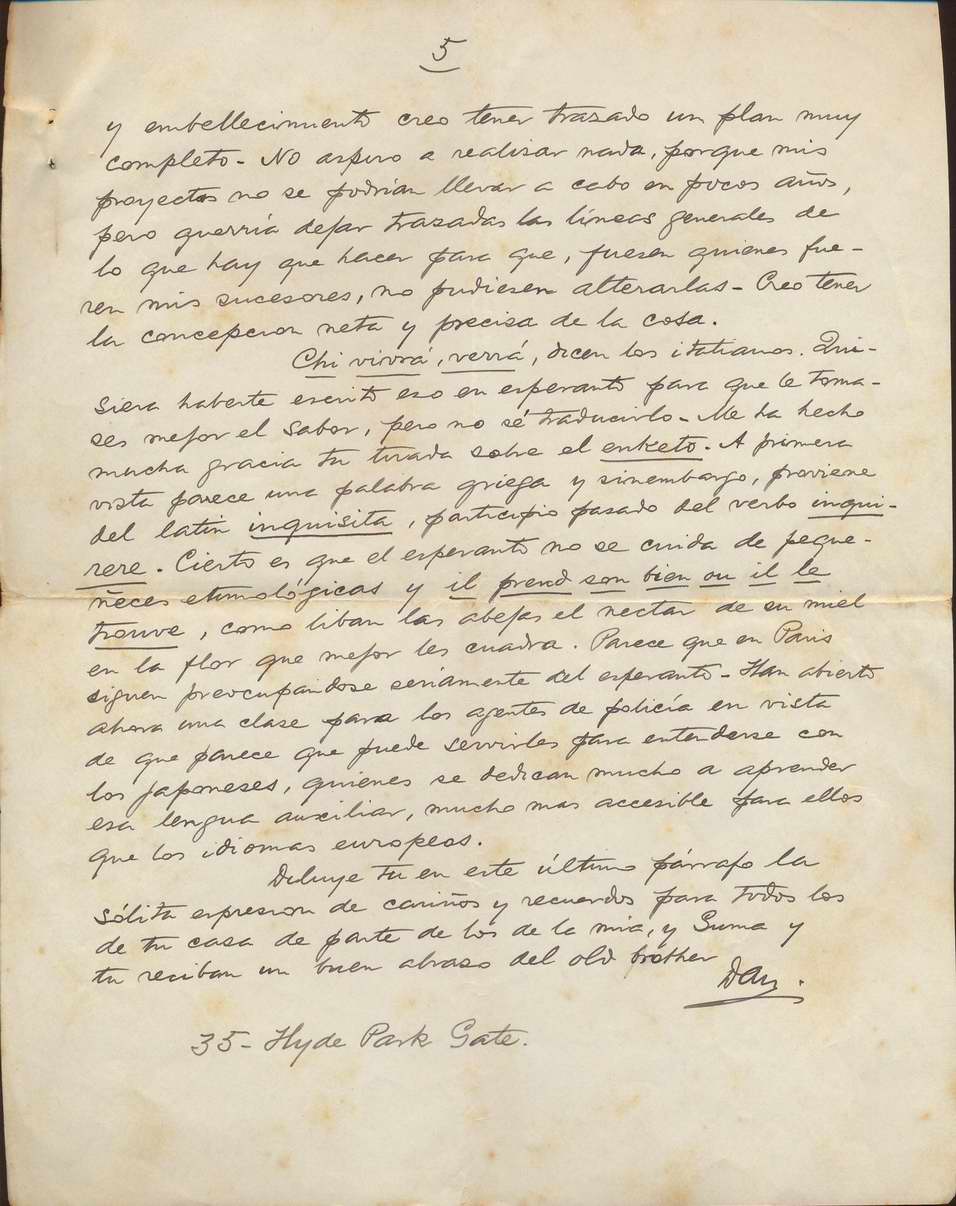 5
y embellecimiento creo tener trazado un plan muy
completo - No aspiro a realizar nada, porque mis
proyectos no se podrían llevar a cabo en pocos años,
pero querría dejar trazadas las líneas generales de
lo que hay que hacer para que, fuesen quienes fue-
ren mis sucesores, no pudiesen alterarlas - Creo tener
la concepcion neta y precisa de la cosa.
Chi vivrá, verrá, dicen los italianos. Qui-
siera haberte escrito eso en esperanto para que le toma-
ses mejor el sabor, pero no sé traducirlo - Me ha hecho
mucha gracia tu tirada sobre el enketo. A primera
vista parece una palabra griega y sinembargo, proviene
del latin inquisita, participio pasado del verbo inqui-
rere. Cierto es que el esperanto no se cuida de peque-
ñeces etimológicas y il prend son bien ou il le
trouve, como liban las abejas el nectar de su miel
en la flor que mejor les cuadra. Parece que en Paris
siguen preocupándose sériamente del esperanto - Han abierto
ahora una clase para los agentes de policía en vista
de que parece que puede servirles para entenderse con
los japoneses, quienes se dedican mucho a aprender
esa lengua auxiliar, mucho mas accesible para ellos
que los idiomas europeos.
Diluye tu en este último párrafo la
sólita espresion de cariños y recuerdos para todos los
de tu casa de parte de los de la mia, y Suma y
tu reciban un buen abraso del old brother
Dan.
35 - Hyde Park Gate.